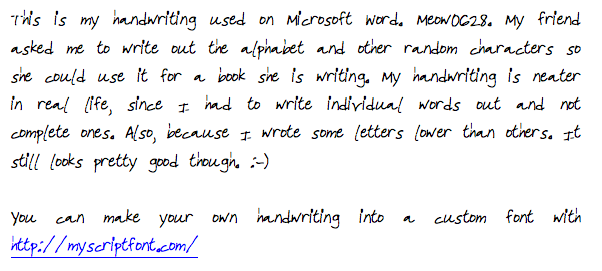 This is my handwriting used on Microsoft Word. Meow0628. My friend
asked me to write out the alphabet and other random characters so
she could use it for a book she is writing. My handwriting is neater
in real life, since I had to write individual words out and not
complete ones. Also, because I wrote some letters lower than others. It
still looks pretty good though. :-)
You can make your own handwriting into a custom font with
http://myscriptfont.com/